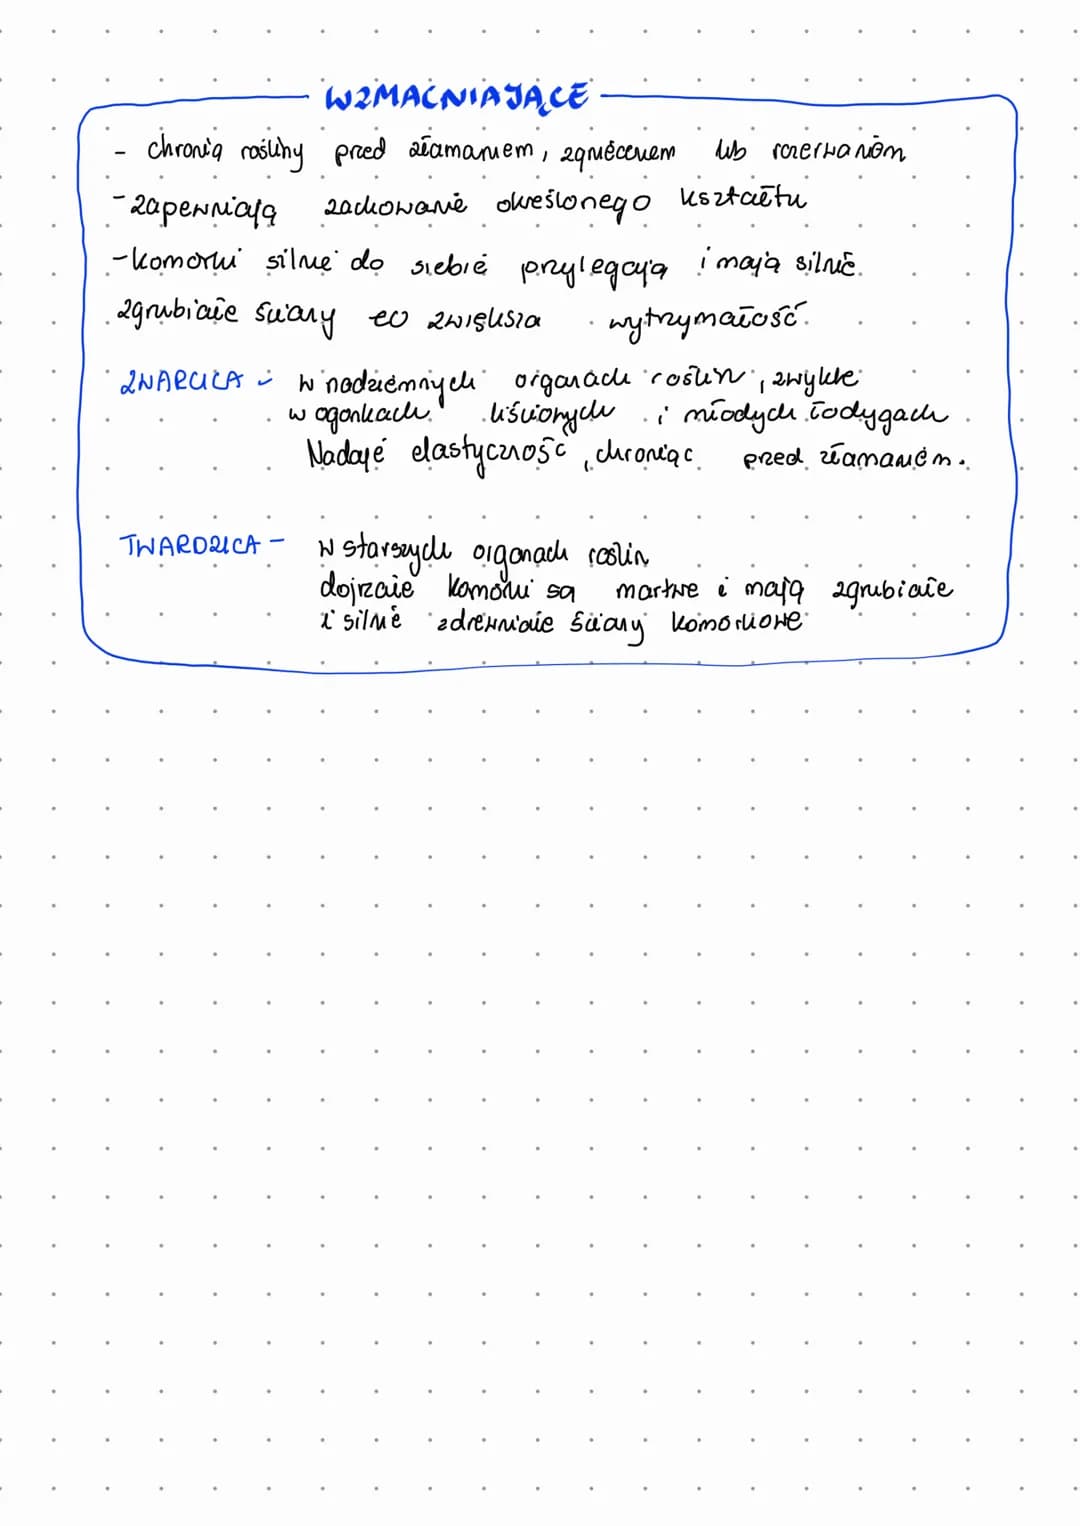 WZMACNIAJĄCE
- chronią rośliny przed złamaniem, zgnieceniem lub rozerwaniem
- zapewniają zachowanie określonego kształtu
- komórki silnie do siebie przylegają i mają silnie
zgrubiałe ściany co zwiększa wytrzymałość.
ZWARCICA - w nadziemnych organach roślin, zwykle
w ogonkach liściowych i młodych łodygach
Nadaje elastyczność, chroniąc przed złamaniem.
TWARDZICA - W starszych organach roślin
dojrzałe komórki są martwe i mają zgrubiałe
i silnie zdrewniałe ściany komórkowe